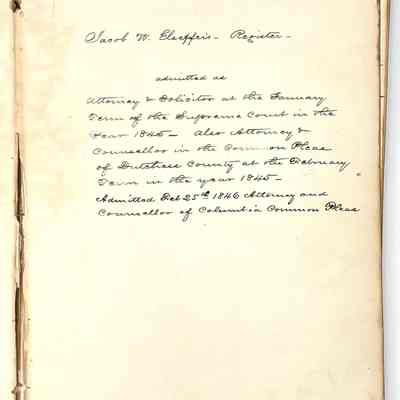 Jacob W. Elseffer's - Register -
admitted as
Attorney & Solicitor at the January
Term of the Supreme Court in the
Year 1845 - Also Attorney &
Counsellor in the Common Pleas
of Dutchess County at the February
Term in the year 1845 -
Admitted Feb 25th 1846 Attorney and
Counsellor of Columbia Common Pleas